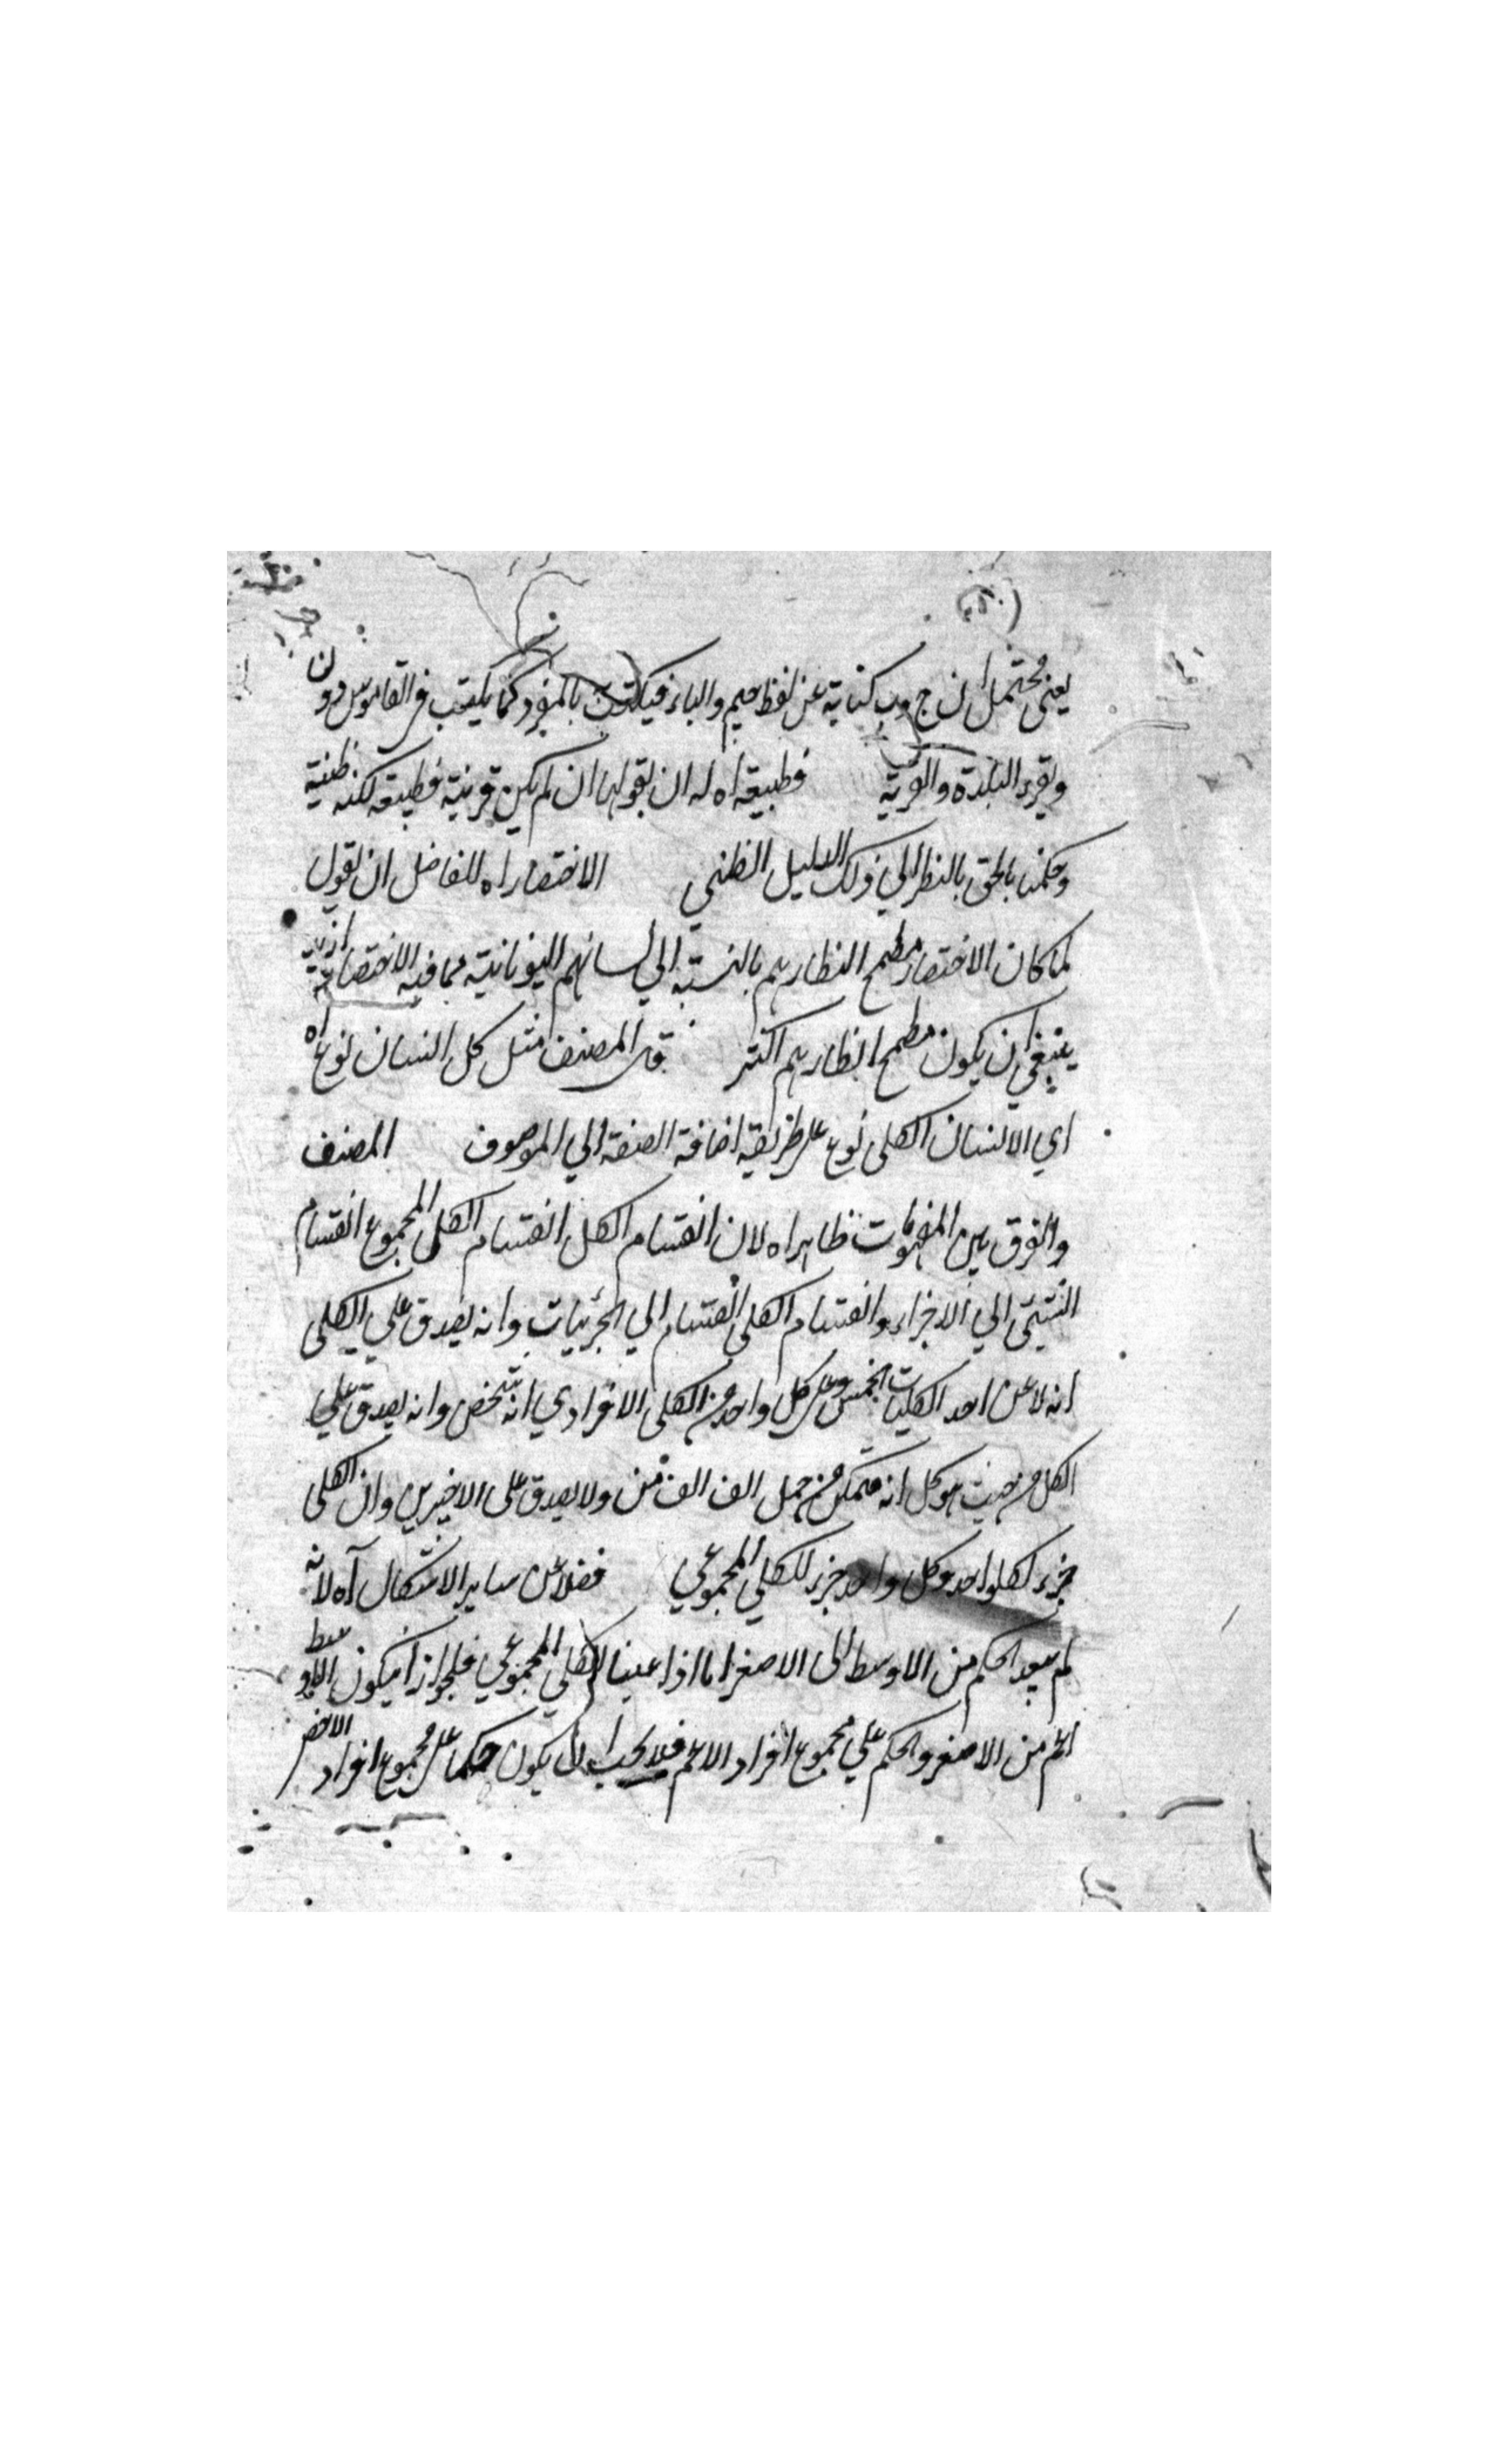 يعنى محتمل ان ج وب كناية عن لفظ جيم والباء فيكتب بالمفرد كما يكتب فى القاموس دون
ويقرء البلدة والقرية فطبيعة اه له ان يقول ان لم يكن قرينة فطبيعة لكنه ظنية
وحكمنا بالحق بالنظر الي ذلك الدليل الظني الاختصار اه للفاضل ان يقول
لما كان الاختصار مطمح انظارهم بالنسبة الي لسانهم اليونانية مما فيه الاختصار
ينبغي ان يكون مطمح انظارهم اكثر قال المصنف مثل كل انسان نوع اه
اي الانسان الكلى نوع على طريقة اضافة الصفة الي الموصوف المصنف
والفرق بين المفهومات ظاهر اه لان انقسام الكل انقسام الكلى المجموع انقسام
الشيئ الي الاجزاء وانقسام الكلى انقسام الي الجزئيات وانه يصدق علي الكلى
انه لا عن احد الكليات الخمس وعلى كل واحد من الكلى الافرادي انه شخص وانه يصدق علي
الكل من حيث هو كل انه متمكن من حمل الف الف من ولا يصدق على الاخيرين وان الكلى
جزء لكل واحد وكل واحد جزء للكلي المجموعي فضلا عن ساير الاشكال آه لانه
لم يتعد الحكم من الاوسط الى الاصغر اما اذا عنينا الكلي المجموعي فلجواز ان يكون الاوسط
اعم من الاصغر والحكم علي مجموع افراد الاعم فلا يجب ان يكون حكما على مجموع افراد الاخص